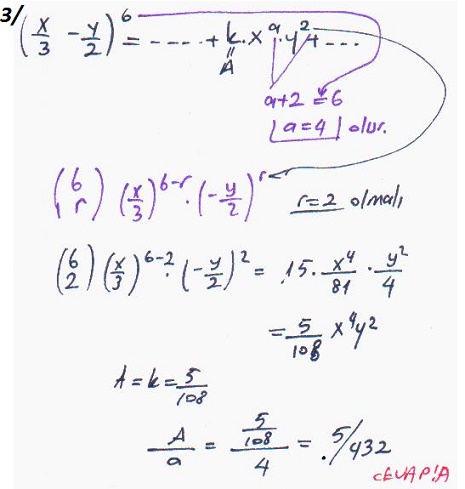 3/ (x/3 - y/2)^6 = ---- + k.x^a.y^2 + ---
A
a+2=6
a=4 olur.
(6 r) (x/3)^6-r . (-y/2)^r r=2 olmalı
(6 2) (x/3)^6-2 . (-y/2)^2 = 15 . x^4/81 . y^2/4
= 5/108 x^4y^2
A = k = 5/108
A/a = 5/108/4 = 5/432
CEVAP!A